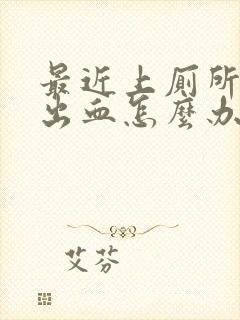 最近上厠所
出血怎麼办
艾芬